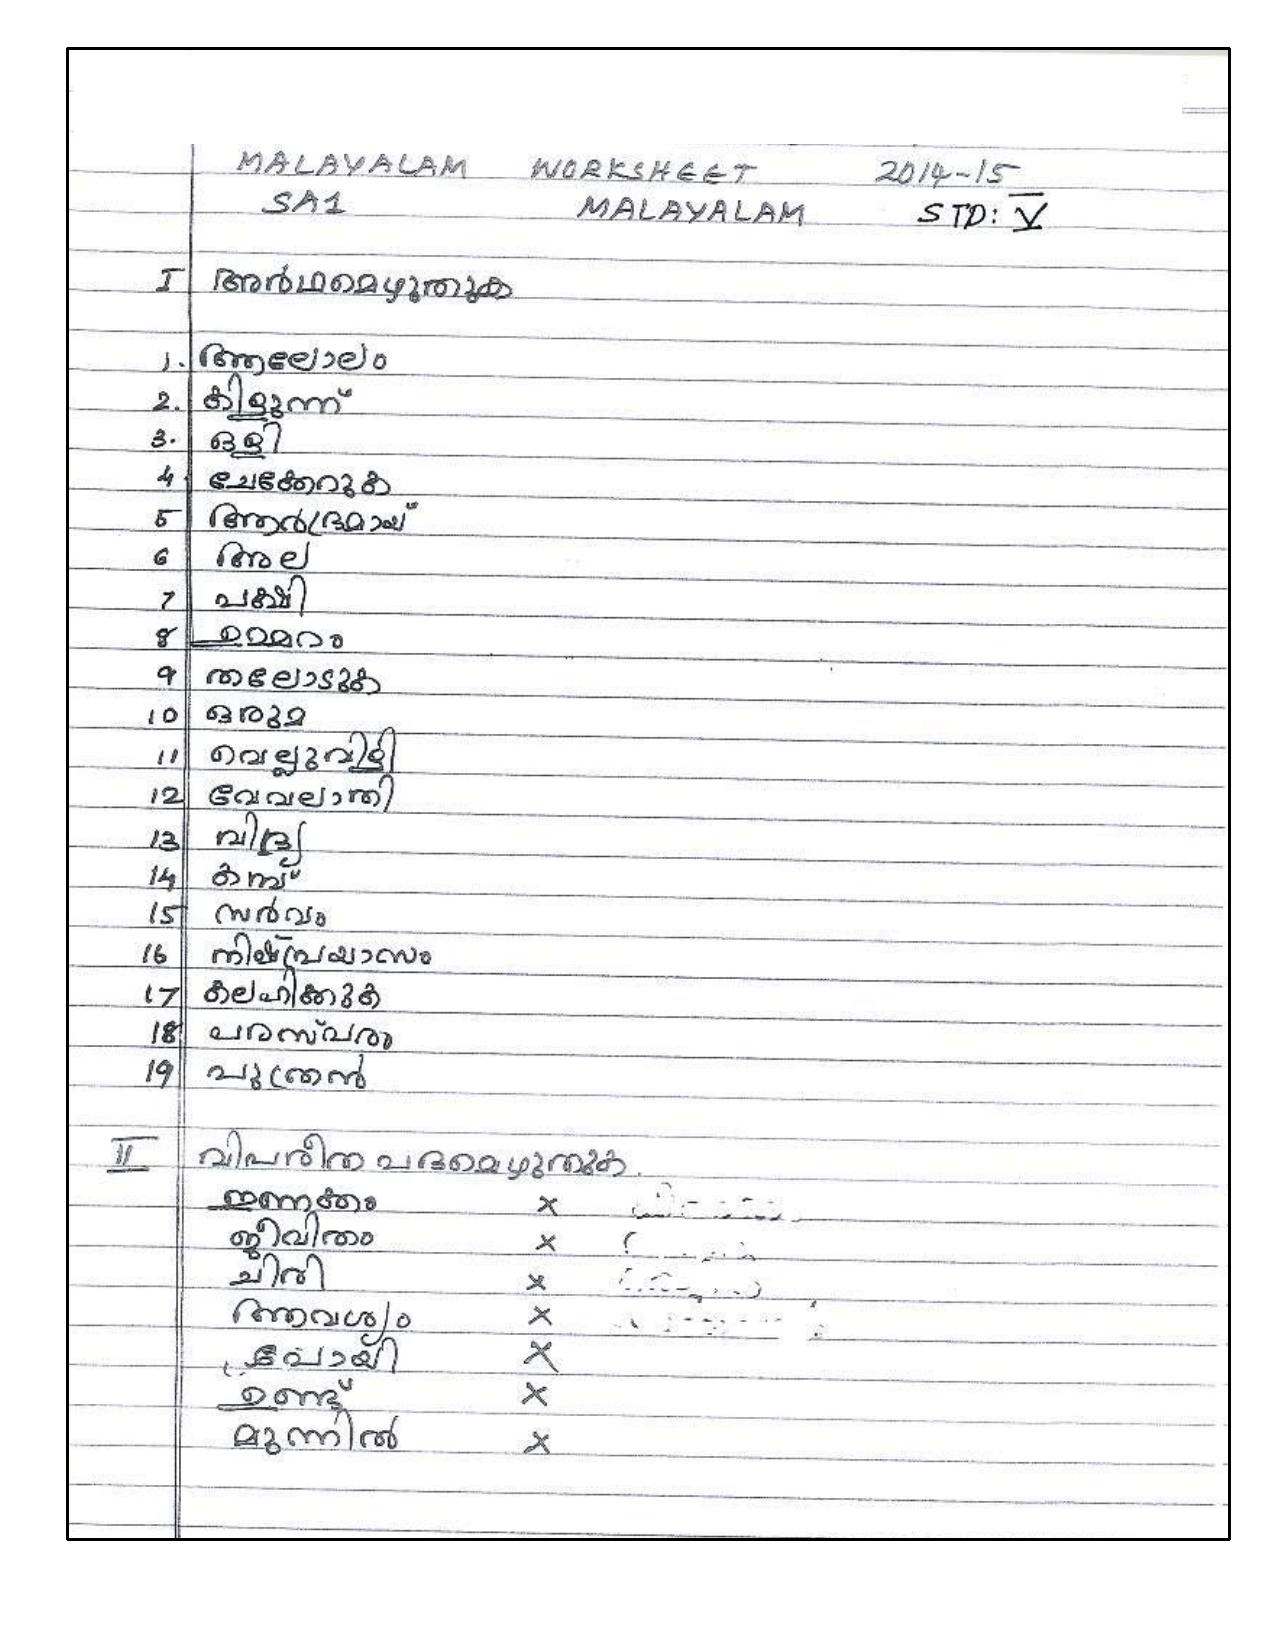 MALAYALAM WORKSHEET 2014-15
SA1 MALAYALAM STD: V
I അർഥമെഴുതുക
1. ആലോലം
2. കിളുന്ന്
3. ഒളി
4. ചേക്കേറുക
5 ആർദ്രമായ്
6 അല
7 പക്ഷി
8 ഉമ്മറം
9 തലോടുക
10 ഒരുമ
11 വെല്ലുവിളി
12 വേവലാതി
13 വിദ്യ
14 കമ്പ്
15 സർവം
16 നിഷ്പ്രയാസം
17 കലഹിക്കുക
18 പരസ്പരം
19 പുത്രൻ
II വിപരീത പദമെഴുതുക.
ഇണക്കം ×
ജീവിതം ×
ചിരി ×
ആവശ്യം ×
പോയി ×
ഉണ്ട് ×
മുന്നിൽ ×